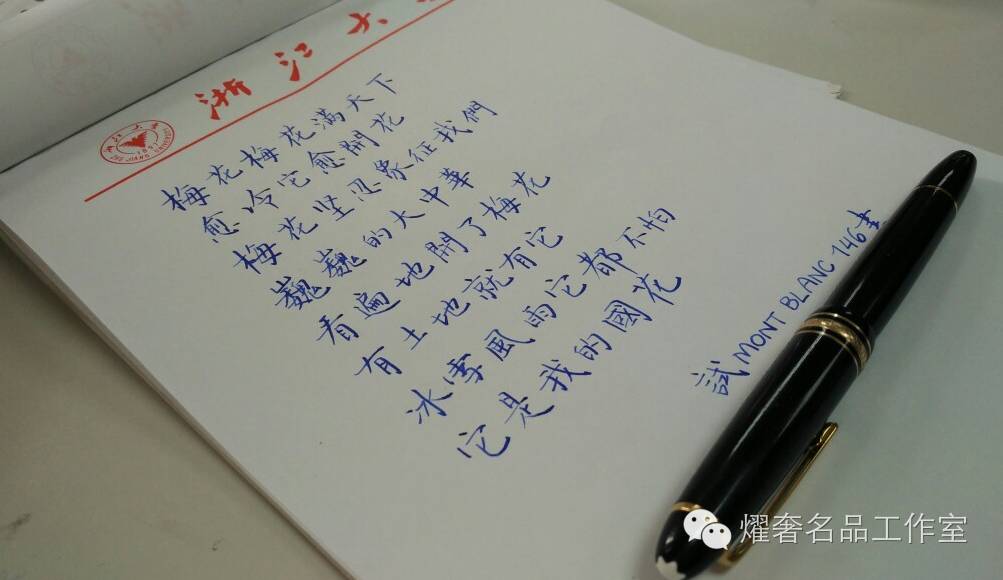 浙江大
梅花梅花滿天下
愈冷它愈開花
梅花坚忍象征我們
巍巍的大中華
看遍地開了梅花
有土地就有它
冰雪風雨它都不怕
它是我的國花
試MONT BLANC 146書
耀奢名品工作室